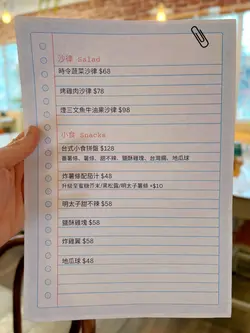 沙律 Salad
時令蔬菜沙律 $68
烤雞肉沙律 $78
煙三文魚牛油果沙律 $98
小食 Snacks
台式小食拼盤 $128
番薯條、薯條、甜不辣、鹽酥雞塊、台灣腸、地瓜球
炸薯條配茄汁 $48
升級至蜜糖芥末/黑松露/明太子薯條 +$10
明太子甜不辣 $58
鹽酥雞塊 $58
炸雞翼 $58
地瓜球 $48